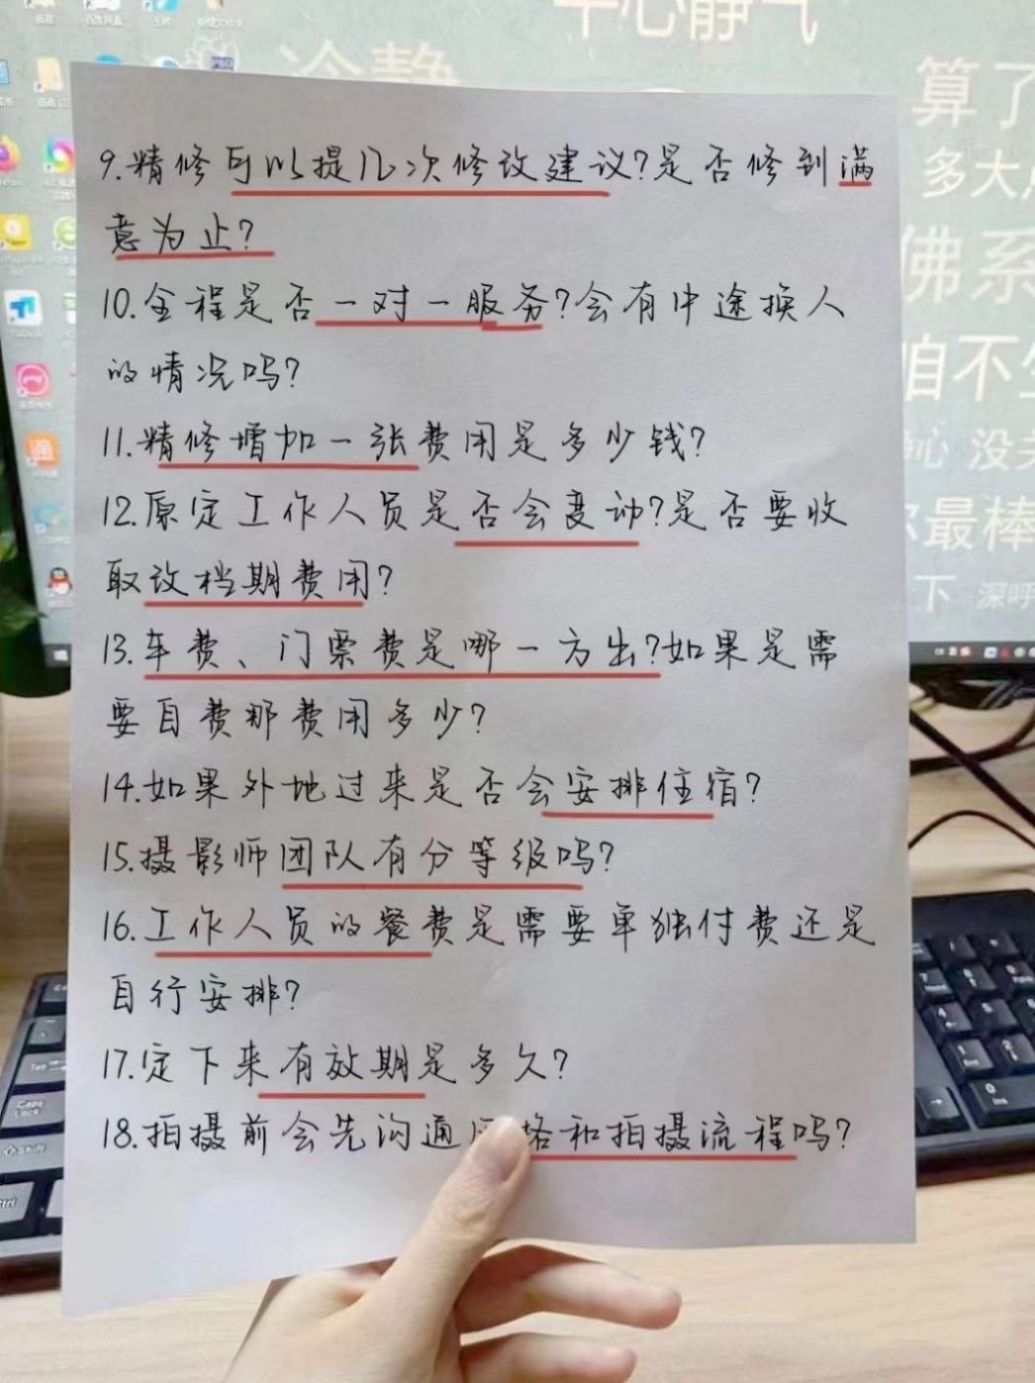 平心静气
冷静
算了
多大
佛系
咱不
心 没
最棒
下 深呼
9.精修可以提几次修改建议?是否修到满
意为止?
10.全程是否一对一服务?会有中途换人
的情况吗?
11.精修增加一张费用是多少钱?
12.原定工作人员是否会变动?是否要收
取改档期费用?
13.车费、门票费是哪一方出?如果是需
要自费那费用多少?
14.如果外地过来是否会安排住宿?
15.摄影师团队有分等级吗?
16.工作人员的餐费是需要单独付费还是
自行安排?
17.定下来有效期是多久?
18.拍摄前会先沟通 格和拍摄流程吗?
Tab
Caps
Lock
Shift